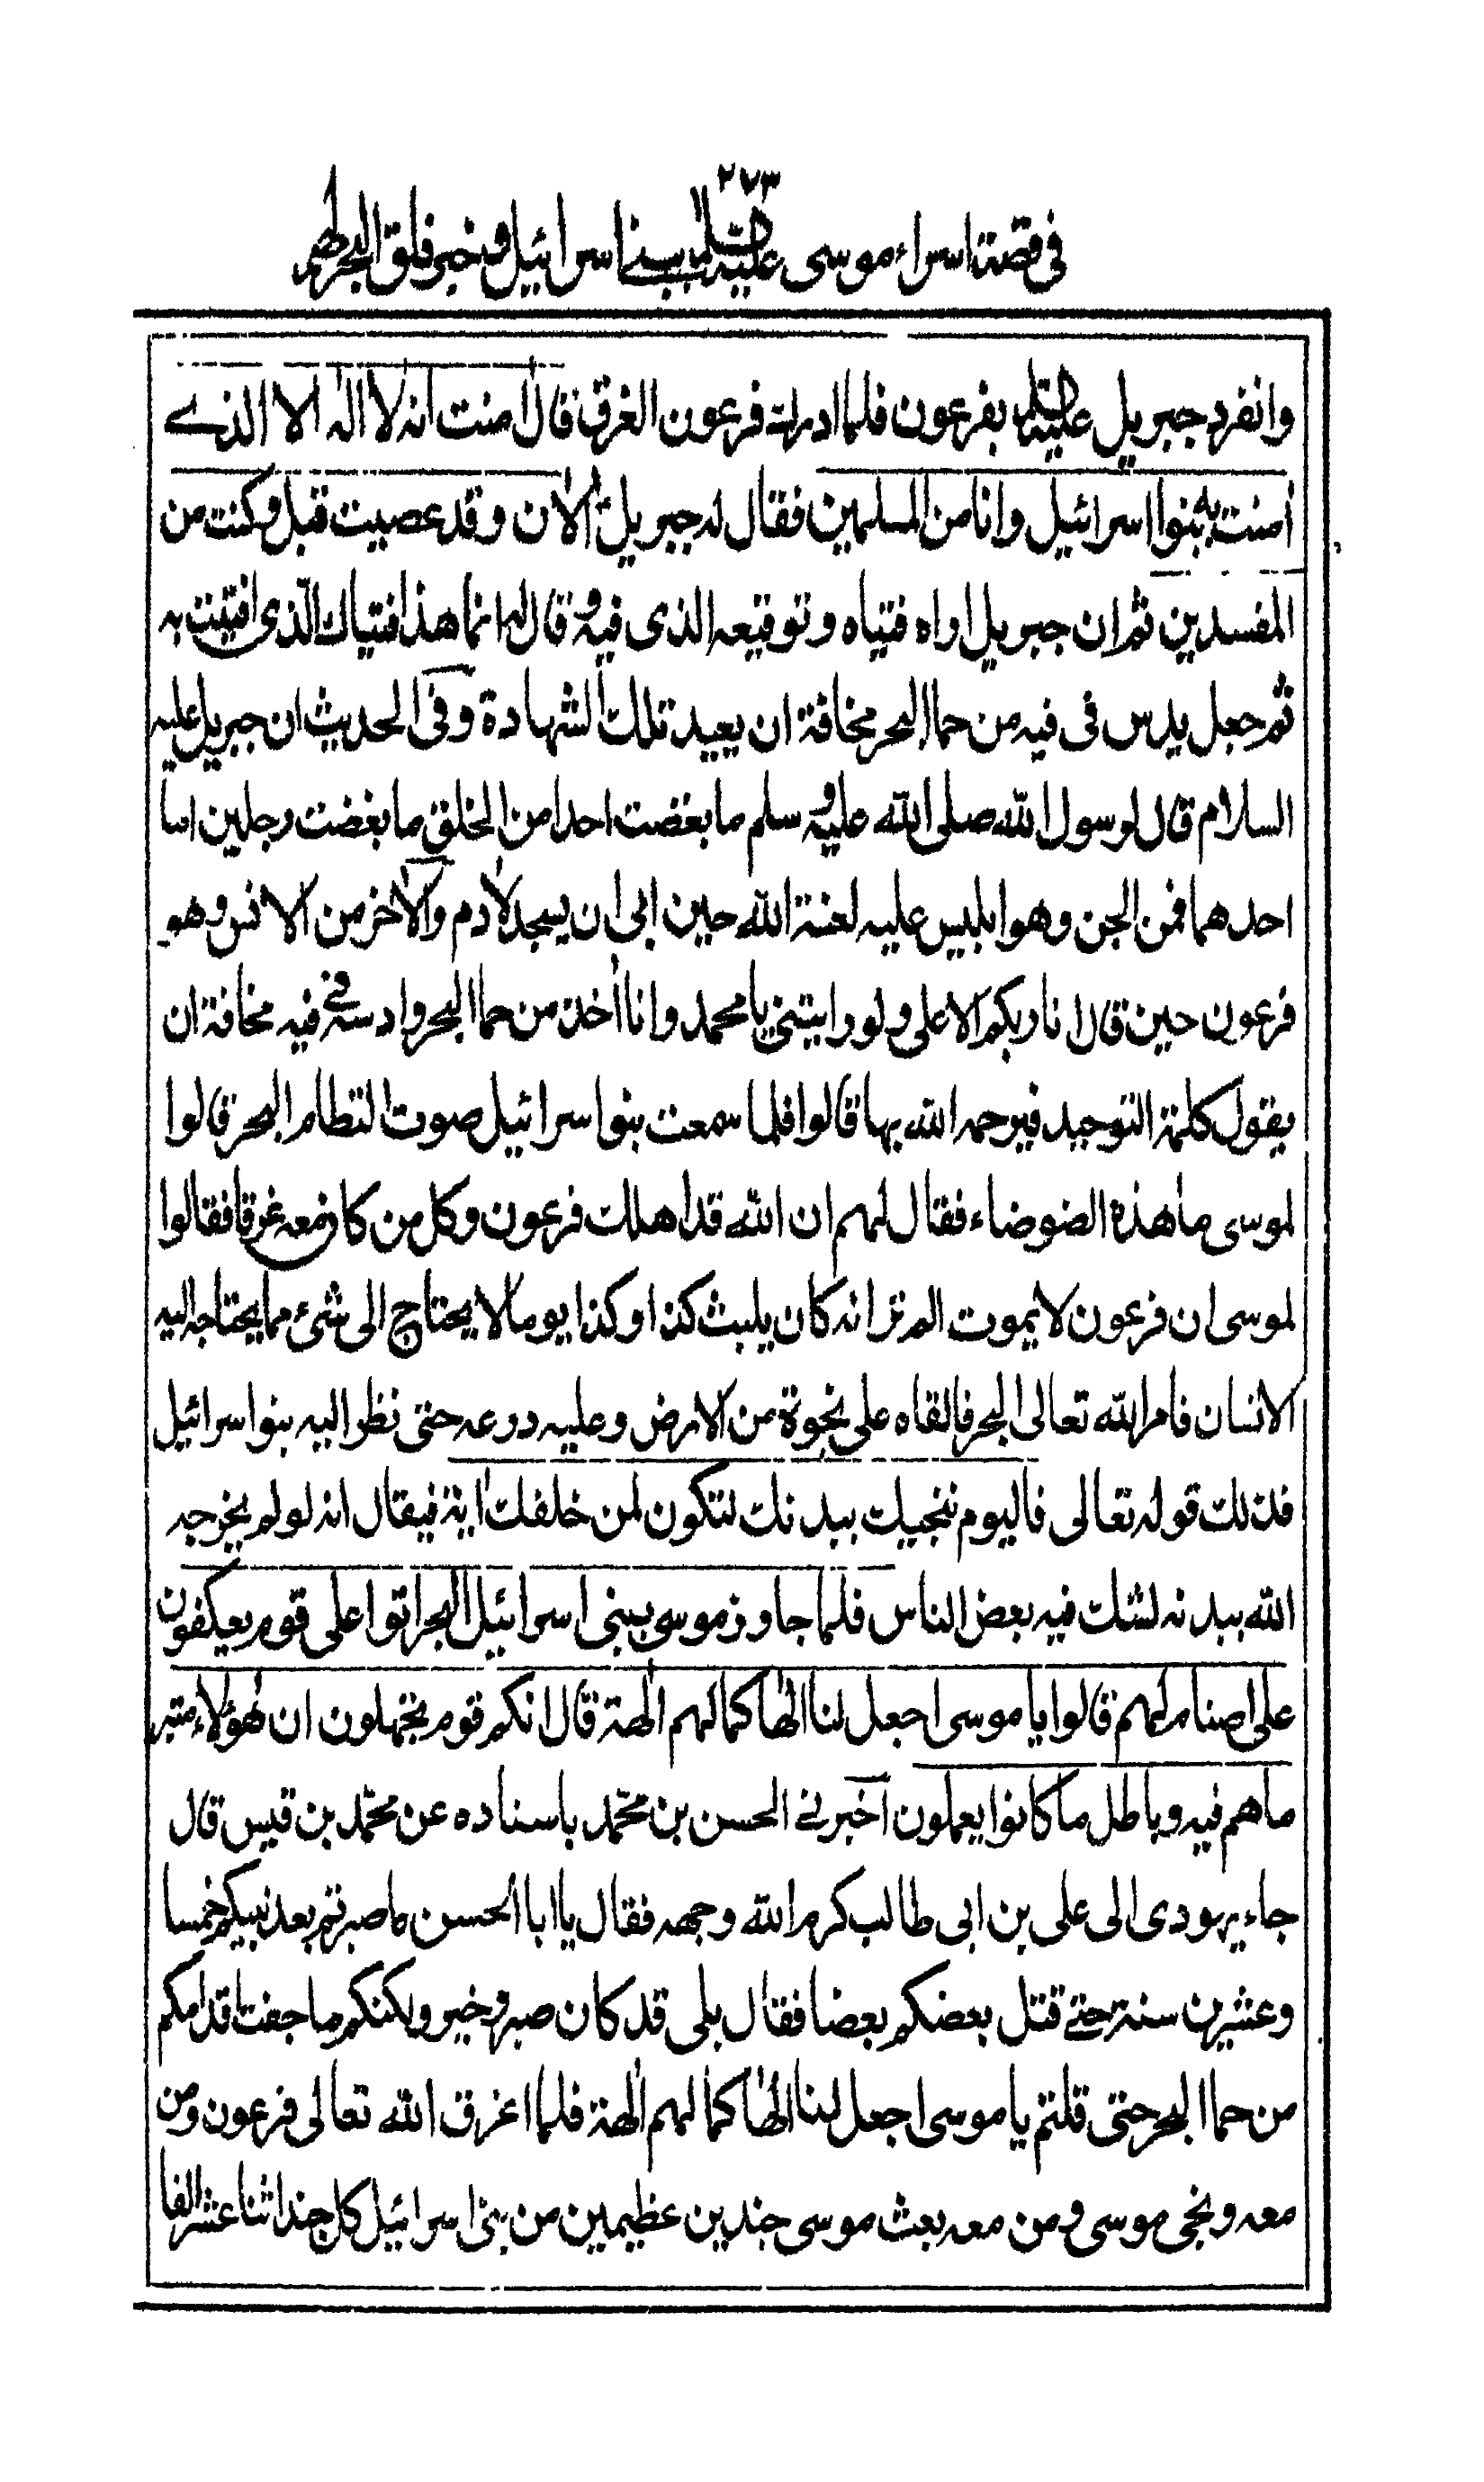 ٢٧٣
فى قصة اسراء موسى عليه السلام ببنے اسرائيل وخبر فلق البحر لهم
وانفرد جبريل عليه السلام بفرعون فلما ادركه فرعون الغرق قال اٰمنت انه لا اله الا الذے
اٰمنت به بنوا اسرائيل وانا من المسلمين فقال له جبريل اٰلاٰن وقد عصيت قبل وكنت من
المفسدين ثم ان جبريل اراه فتياه وتوقيعه الذى فيه وقال له انما هذا فتياك الّذى افتيت به
ثم جعل يدس فى فيه من حما البحر مخافة ان يعيد تلك الشهادة وفى الحديث ان جبريل عليه
السلام قال لرسول الله صلى الله عليه وسلم ما بغضت احدا من الخلق ما بغضت رجلين اما
احدهما فمن الجن وهو ابليس عليه لعنة الله حين ابى ان يسجد لاٰدم والاٰخر من الانس وهو
فرعون حين قال انا ربكم الاعلى ولو رايتنى يا محمد وانا اٰخذ من حما البحر وادسه فے فيه مخافة ان
يقول كلمة التوحيد فيرحمه الله بها قالوا فلما سمعت بنوا سرائيل صوت التطام البحر قالوا
لموسى ما هذه الضوضاء فقال لهم ان الله قد اهلك فرعون وكل من كان معه غرقا فقالوا
لموسى ان فرعون لا يموت الم تر انه كان يلبث كذا وكذا يوما لا يحتاج الى شئ مما يحتاجه اليه
الانسان فامر الله تعالى البحر فالقاه على نجوة من الارض وعليه درعه حتى نظر اليه بنوا سرائيل
فذلك قوله تعالى فاليوم ننجيك ببدنك لتكون لمن خلفك اٰية فيقال انه لو لم يخرجه
الله ببدنه لشك فيه بعض الناس فلما جاوز موسى ببنى اسرائيل البحر اتوا على قوم يعكفون
على اصنام لهم قالوا يا موسى اجعل لنا الٰها كما لهم اٰلهة قال انكم قوم تجهلون ان هٰؤلاء متبر
ما هم فيه وباطل ما كانوا يعملون اخبرنے الحسن بن محمّد باسناده عن محمّد بن قيس قال
جاء يهودى الى على بن ابى طالب كرم الله وجهه فقال يا ابا الحسن ما صبرتم بعد نبيكم خمسا
وعشرين سنة حتے قتل بعضكم بعضا فقال بلى قد كان صبر وخير ولكنكم ما جفت اقدامكم
من حما البحر حتى قلتم يا موسى اجعل لنا الٰها كما لهم اٰلهة فلما اغرق الله تعالى فرعون ومن
معه ونجى موسى ومن معه بعث موسى جندين عظيمين من بنى اسرائيل كل جند اثنا عشر الفا